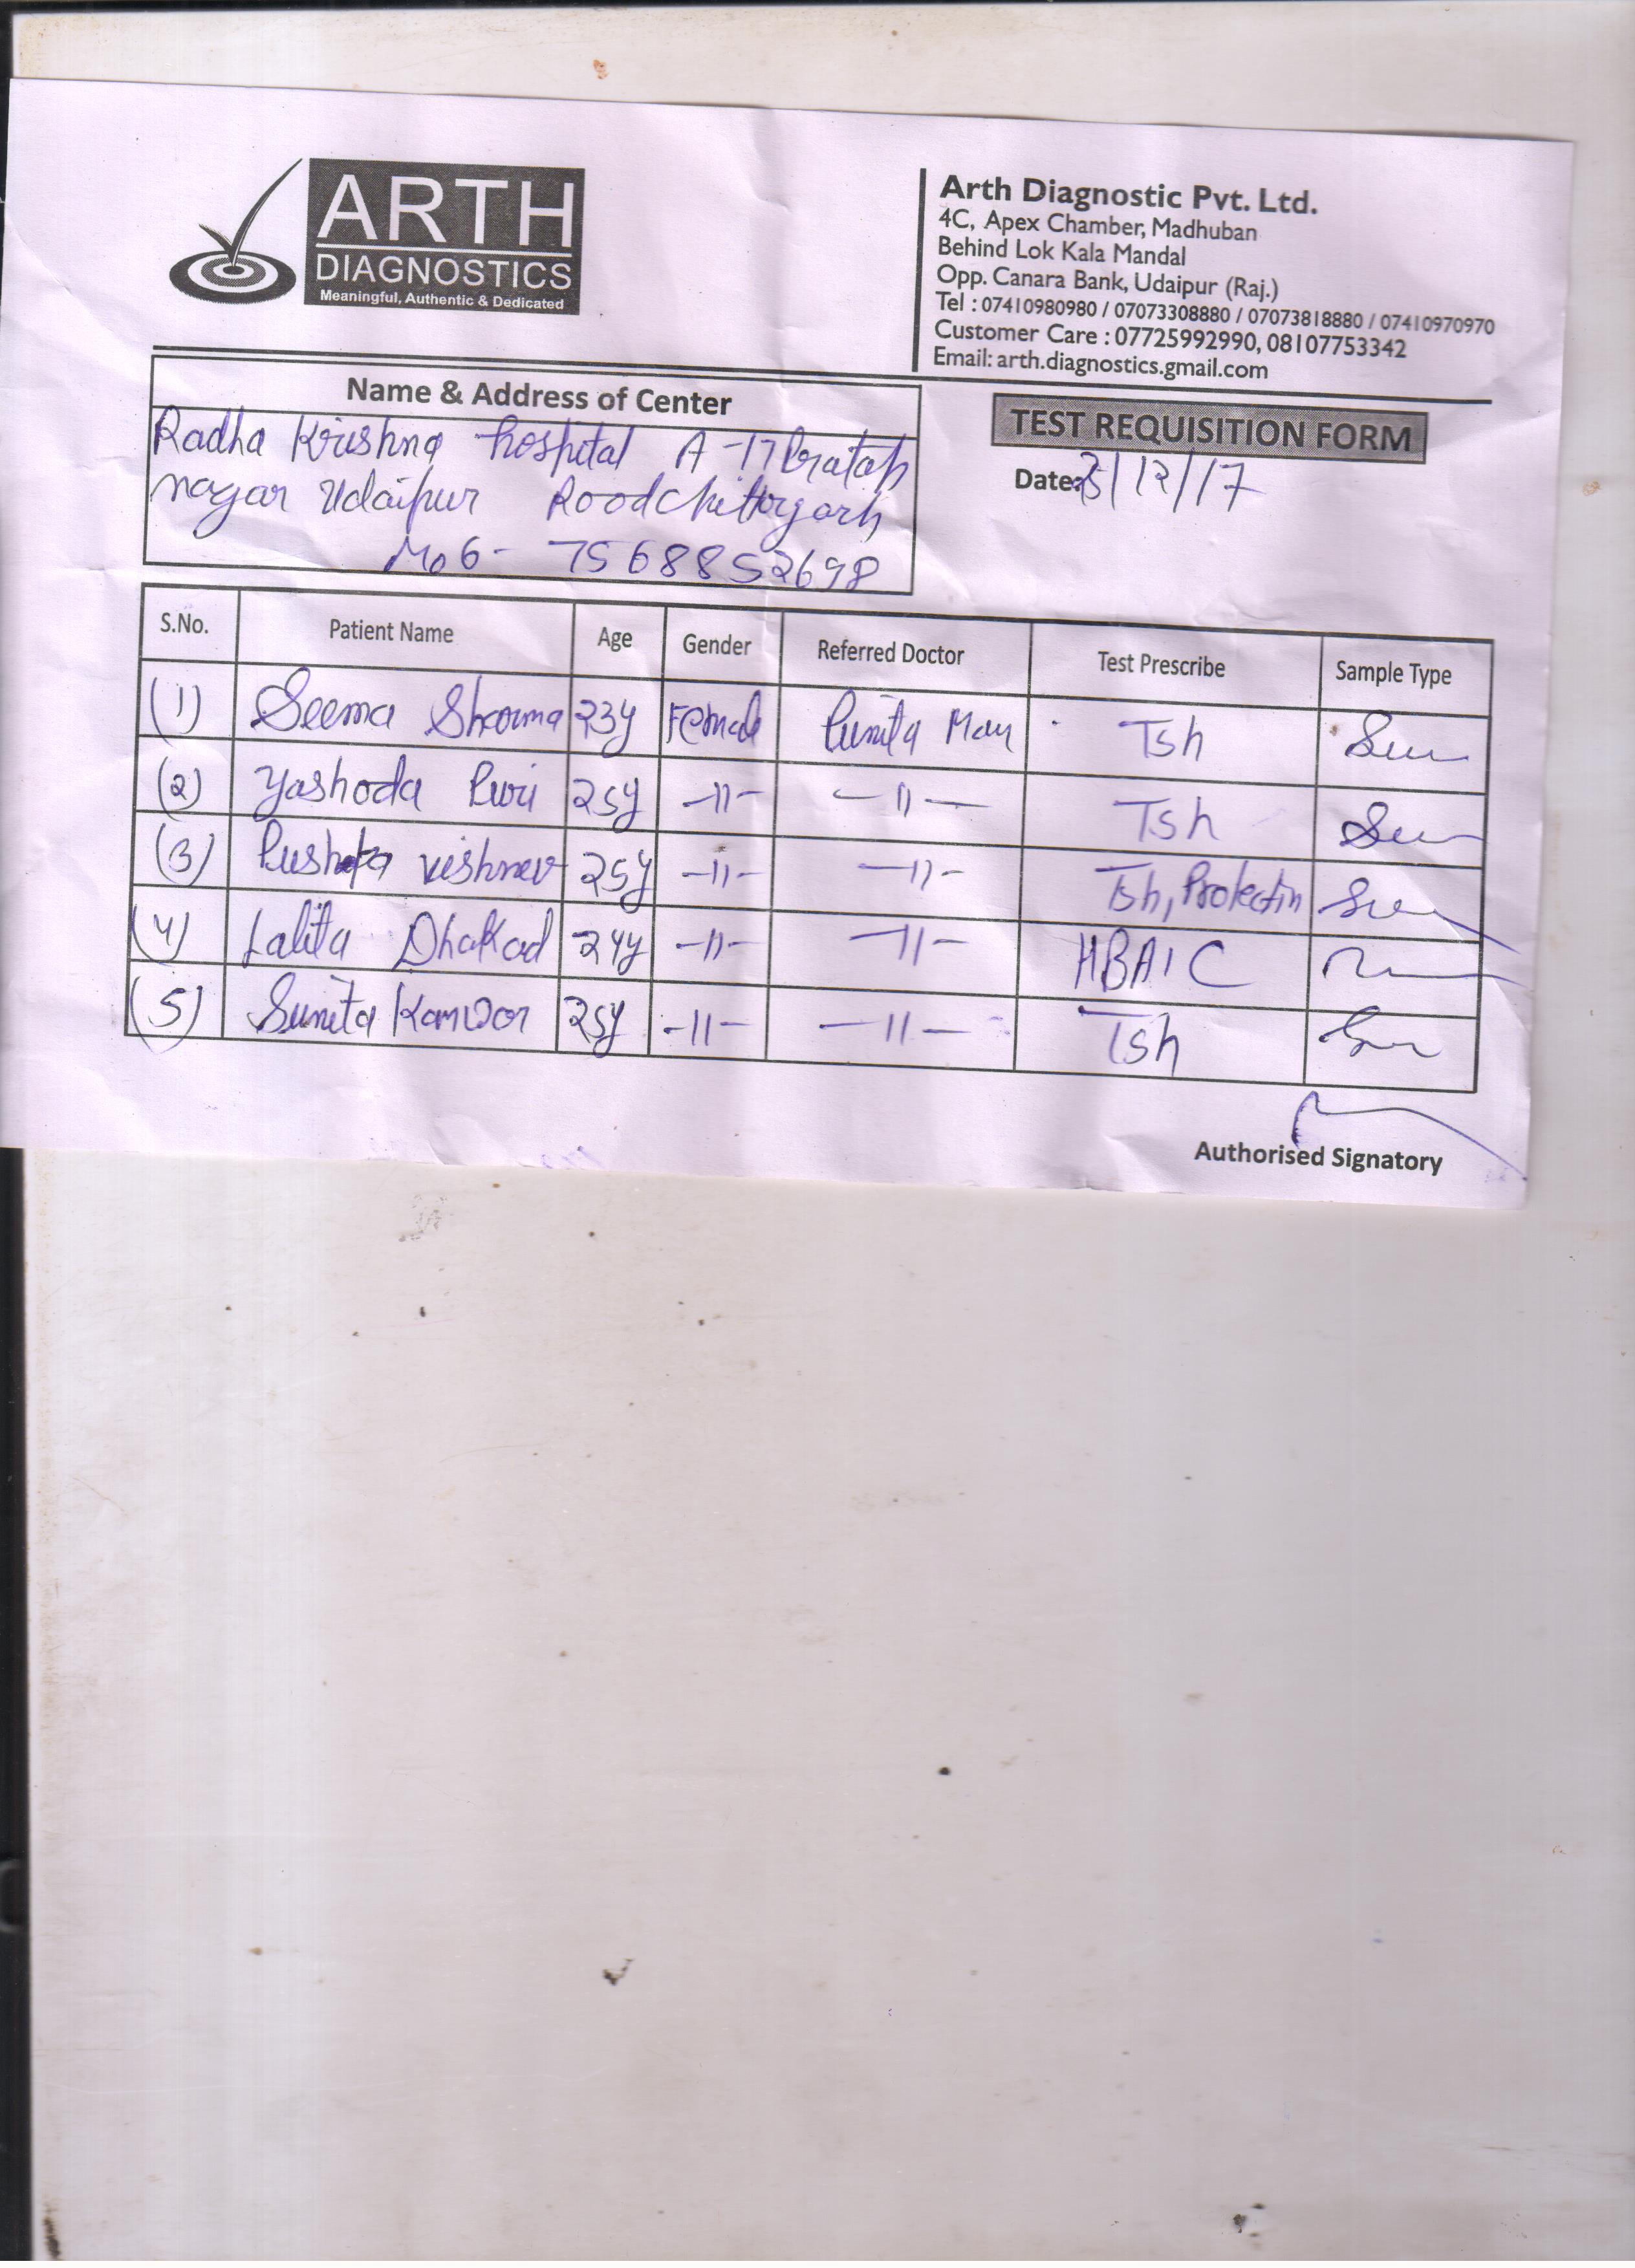 ARTH
DIAGNOSTICS
Meaningful, Authentic & Dedicated
Arth Diagnostic Pvt. Ltd.
4C, Apex Chamber, Madhuban
Behind Lok Kala Mandal
Opp. Canara Bank, Udaipur (Raj.)
Tel : 07410980980 / 07073308880 / 07073818880 / 07410970970
Customer Care : 07725992990, 08107753342
Email: arth.diagnostics.gmail.com
Name & Address of Center
Radha Krishna hospital A-17 Pratap
nagar Udaipur Rood Chittorgarh
Mob- 7568852698
TEST REQUISITION FORM
Date: /12/17
S.No. Patient Name Age Gender Referred Doctor Test Prescribe Sample Type
(1) Seema Sharma 23y Female Punita Mam Tsh
(2) Yashoda Puri 25y -11- -11- Tsh
(3) Pushpa 25y -11- -11- Tsh, Prolectin
(4) Lalita Dhakad 24y -11- -11- HBA1C
(5) Sunita Kanwor 25y -11- -11- Tsh
Authorised Signatory